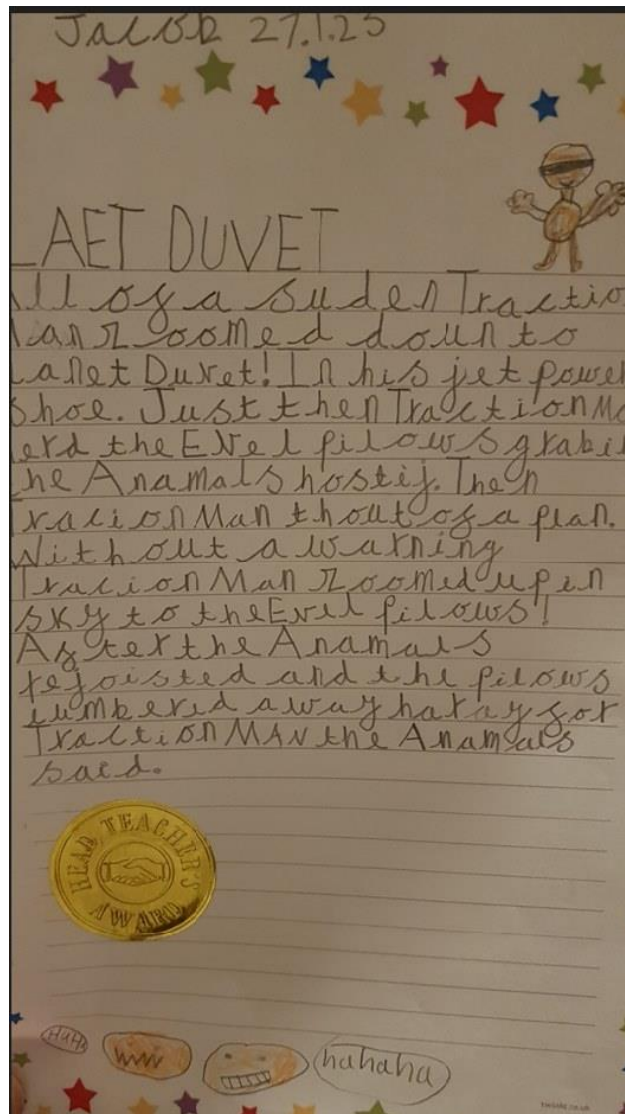 Jacob 27.1.23
LAET DUVET
All of a suden Tractio
Man zoomed down to
Lanet Duvet! In his jet power
shoe. Just then Traction Ma
herd the Evel pilows grabi
the Anamals hostij. Then
Tracion Man thout of a plan.
Without a warning
Tracion Man zoomed up in
sky to the Evel pilows!
After the Anamals
rejoisted and the pilows
lumbered away haray for
Traction MAN the Anamals
said.
HEAD TEACHER'S
AWARD
HaHa
hahaha